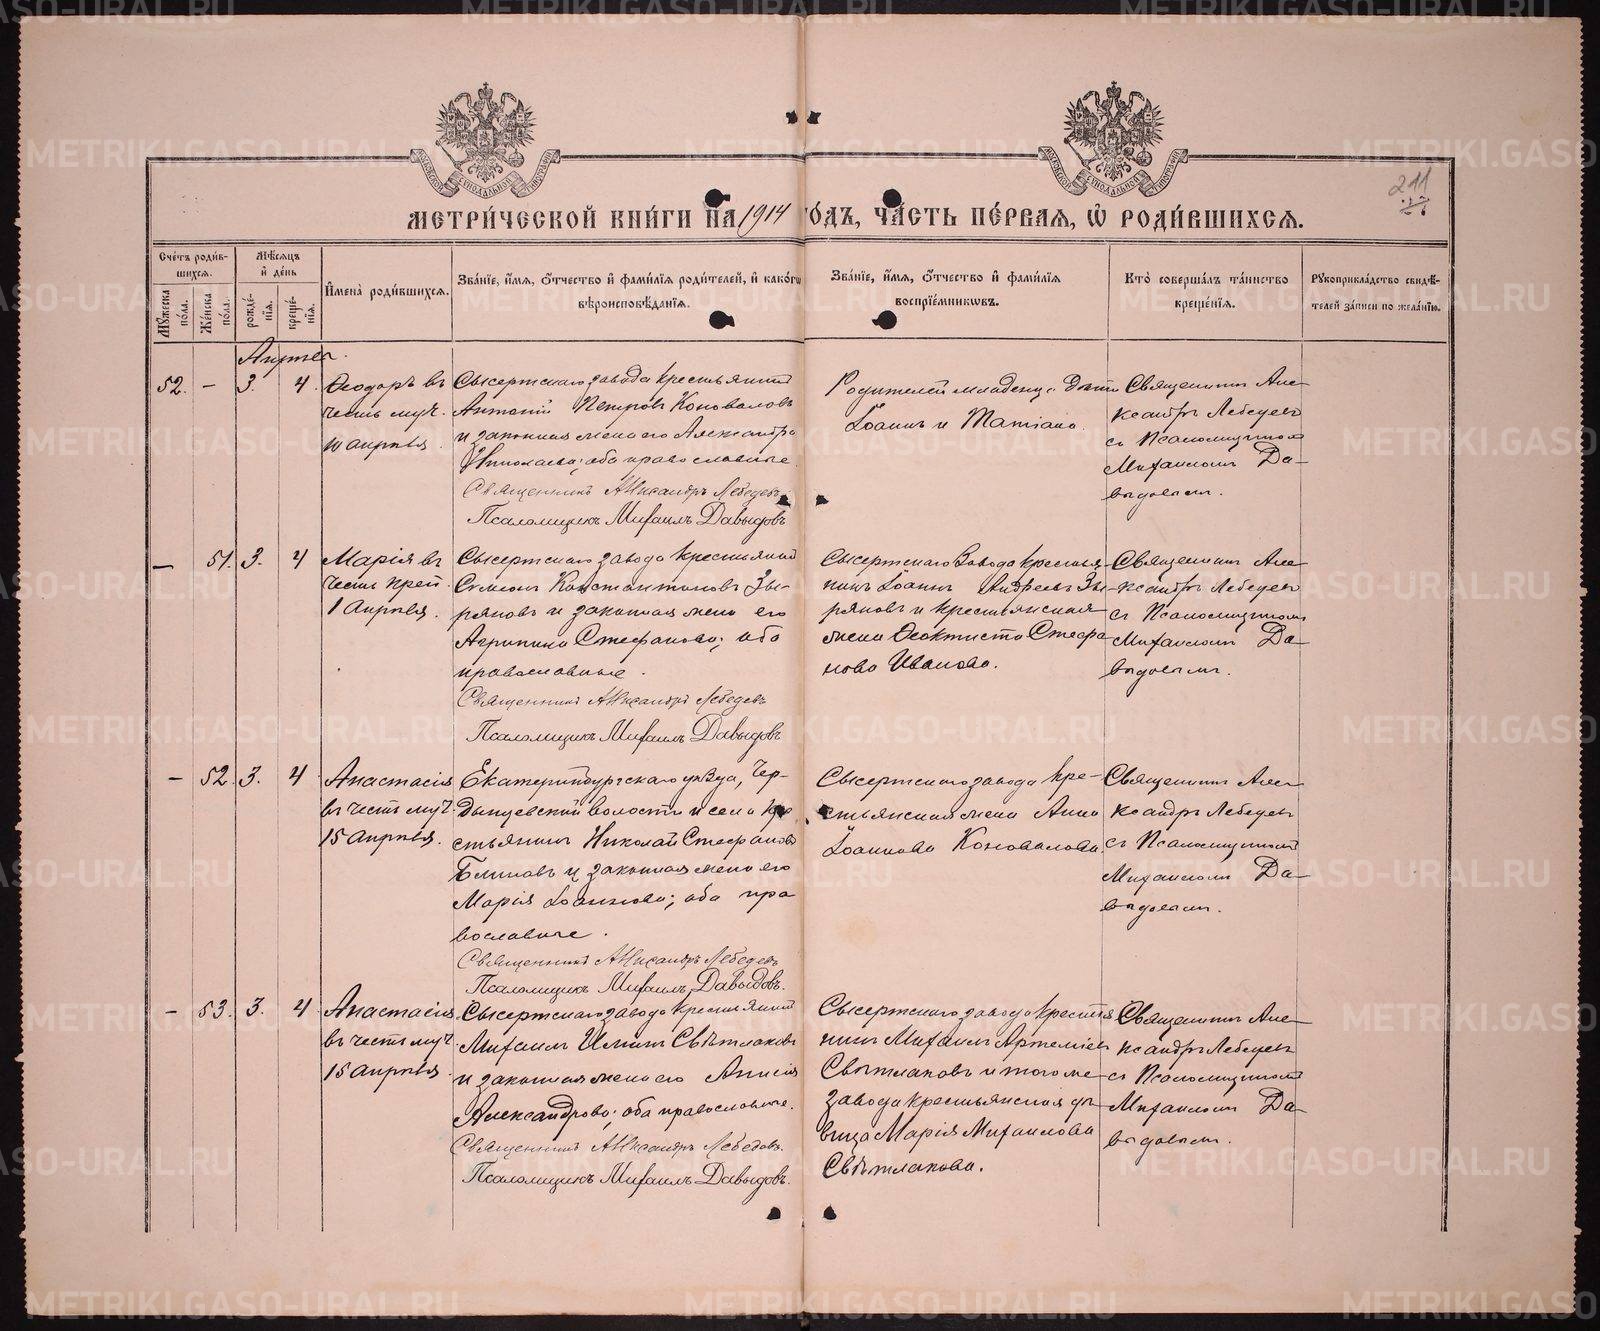 МЕТРИ́ЧЕСКОЙ КНИ́ГИ НА 1914 ГО́ДЪ, ЧА́СТЬ ПЕ́РВАЯ, Ѡ РОДИ́ВШИХСЯ.
211
Сче́тъ роди́в-
шихся.
Му́жеска по́ла.
Же́нска по́ла.
Мѣ́сяцъ и де́нь
рожде́-
нїя.
креще́-
нїя.
И҆мена̀ роди́вшихся.
Зва́нїе, и҆́мя, ѻ҆́тчество и҆ фами́лїя роди́телей, и҆ како́гѡ
вѣроисповѣ́данїя.
Зва́нїе, и҆́мя, ѻ҆́тчество и҆ фами́лїя
воспрїе́мникѡвъ.
Кто̀ соверша́лъ та́инство
креще́нїя.
Рꙋкоприкла́дство свидѣ́-
телей за́писи по жела́нїю.
Апрѣль.
52. — 3. 4.
Ѳеодоръ въ
честь муч.
10 апрѣля.
Сысертскаго завода крестьянинъ
Антоній Петровъ Коноваловъ
и законная жена его Александра
Николаева; оба православные.
Священникъ Александръ Лебедевъ
Псаломщикъ Михаилъ Давыдовъ
Родителей младенца дѣти
Іоаннъ и Татіана.
Священникъ Але-
ксандръ Лебедевъ
съ Псаломщикомъ
Михаиломъ Да-
выдовымъ.
— 51. 3. 4
Марія въ
честь преп.
1 апрѣля.
Сысертскаго завода крестьянинъ
Симеонъ Константиновъ Зы-
ряновъ и законная жена его
Агрипина Стефанова; оба
православные.
Священникъ Александръ Лебедевъ
Псаломщикъ Михаилъ Давыдовъ
Сысертскаго Завода крестья-
нинъ Іоаннъ Андреевъ Зы-
ряновъ и крестьянская
жена Ѳеоктиста Стефа
нова Иванова.
Священникъ Але-
ксандръ Лебедевъ
съ Псаломщикомъ
Михаиломъ Да-
выдовымъ.
— 52. 3. 4
Анастасія
въ честь муч.
15 апрѣля.
Екатеринбургскаго уѣзда,
волости и села кре
стьянинъ Николай Стефановъ
Блиновъ и законная жена его
Марія Іоаннова; оба пра
вославные.
Священникъ Александръ Лебедевъ
Псаломщикъ Михаилъ Давыдовъ.
Сысертскаго завода кре-
стьянская жена Анна
Іоаннова Коновалова.
Священникъ Але-
ксандръ Лебедевъ
съ Псаломщикомъ
Михаиломъ Да-
выдовымъ.
— 53. 3. 4
Анастасія
въ честь муч.
15 апрѣля.
Сысертскаго завода крестьянинъ
Михаилъ Ильинъ Свѣтлаковъ
и законная жена его Анисія
Александрова; оба православные.
Священникъ Александръ Лебедевъ.
Псаломщикъ Михаилъ Давыдовъ.
Сысертскаго завода крестья
нинъ Михаилъ Артеміевъ
Свѣтлаковъ и того же
завода крестьянская дѣ
вица Марія Михаилова
Свѣтлакова.
Священникъ Але-
ксандръ Лебедевъ
съ Псаломщикомъ
Михаиломъ Да-
выдовымъ.
METRIKI.GASO-URAL.RU